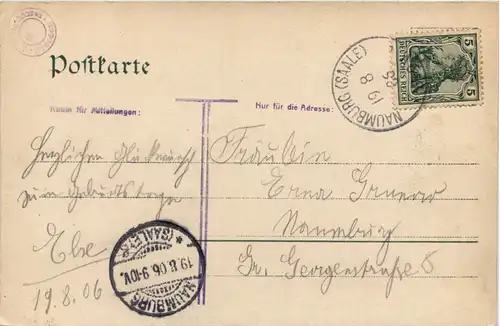 Postkarte
Raum für Mitteilungen:
Nur für die Adresse:
Herzlichen Glückwunsch
zum Geburtstage
Else
19.8.06
Fräulein
Erna
Naumburg
Gr. Georgenstraße 5
NAUMBURG (SAALE)
19 8
NAUMBURG (SAALE)
19.8.06. 9-10V.
5 5
DEUTSCHES REICH